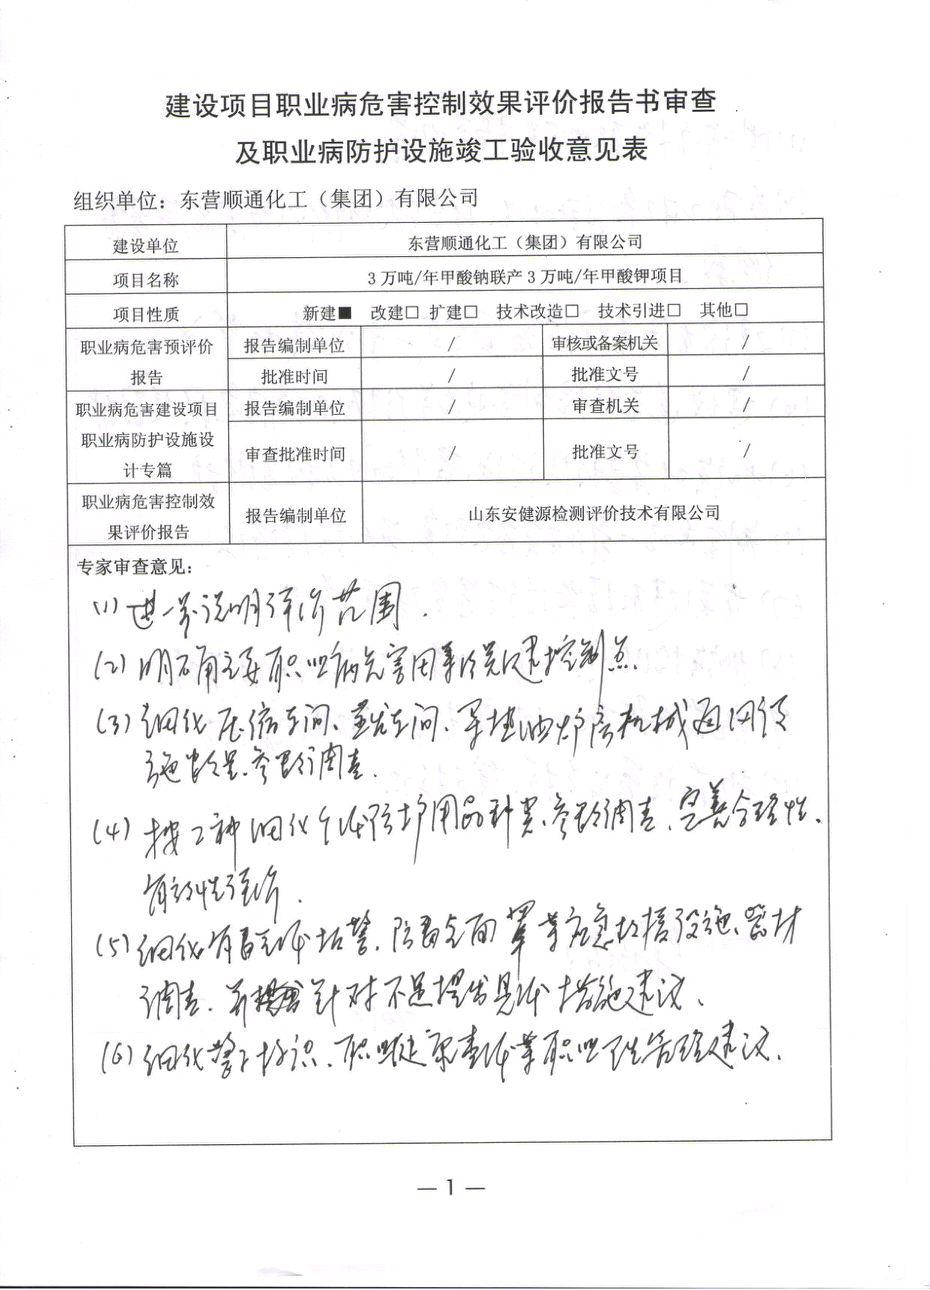 建设项目职业病危害控制效果评价报告书审查
及职业病防护设施竣工验收意见表
组织单位：东营顺通化工（集团）有限公司
建设单位 东营顺通化工（集团）有限公司
项目名称 3万吨/年甲酸钠联产3万吨/年甲酸钾项目
项目性质 新建■ 改建□ 扩建□ 技术改造□ 技术引进□ 其他□
职业病危害预评价
报告
报告编制单位 / 审核或备案机关 /
批准时间 / 批准文号 /
职业病危害建设项目
职业病防护设施设
计专篇
报告编制单位 / 审查机关 /
审查批准时间 / 批准文号 /
职业病危害控制效
果评价报告
报告编制单位 山东安健源检测评价技术有限公司
专家审查意见：
(1) 进一步说明评价范围.
(2) 明确主要职业病危害因素及关键控制点.
(3) 细化压缩车间、蒸发车间、导热油炉房机械通风设
施数量、参数调查.
(4) 按工种细化个体防护用品种类、参数调查、完善合理性、
有效性评价.
(5) 细化有毒气体报警、防毒面罩等应急救援设施、器材
调查、并针对不足提出具体措施建议、
(6) 细化警示标识、职业健康查体等职业卫生管理建议、
— 1 —